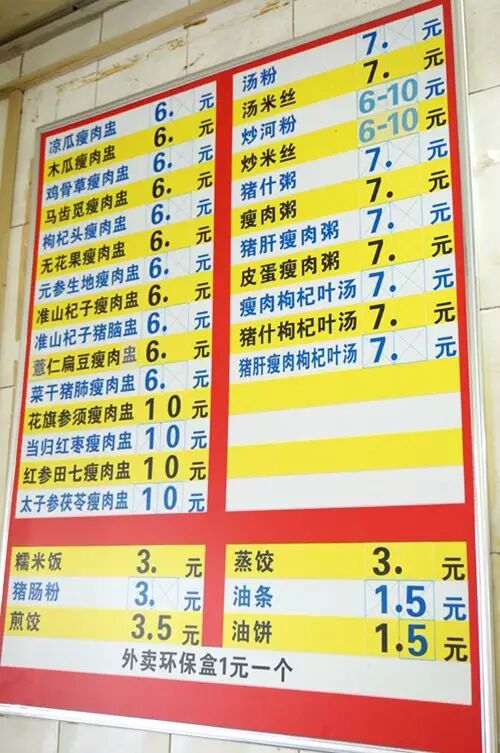 凉瓜瘦肉盅 6. 元
木瓜瘦肉盅 6. 元
鸡骨草瘦肉盅 6. 元
马齿觅瘦肉盅 6. 元
枸杞头瘦肉盅 6. 元
无花果瘦肉盅 6. 元
元参生地瘦肉盅 6. 元
准山杞子瘦肉盅 6. 元
准山杞子猪脑盅 6. 元
薏仁扁豆瘦肉盅 6. 元
菜干猪肺瘦肉盅 6. 元
花旗参须瘦肉盅 10 元
当归红枣瘦肉盅 10 元
红参田七瘦肉盅 10 元
太子参茯苓瘦肉盅 10 元
汤粉 7. 元
汤米丝 7. 元
炒河粉 6-10 元
炒米丝 6-10 元
猪什粥 7. 元
瘦肉粥 7. 元
猪肝瘦肉粥 7. 元
皮蛋瘦肉粥 7. 元
瘦肉枸杞叶汤 7. 元
猪什枸杞叶汤 7. 元
猪肝瘦肉枸杞叶汤 7. 元
糯米饭 3. 元
猪肠粉 3. 元
煎饺 3.5 元
蒸饺 3. 元
油条 1.5 元
油饼 1.5 元
外卖环保盒1元一个